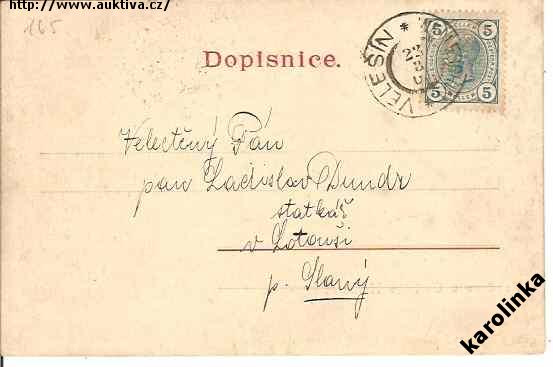 http://www.auktiva.cz/
165
Dopisnice.
VELEŠÍN
5 5
5 5
Velectěný Pán
pan Ladislav Dundr
statkář
v Lotouši
p. Slaný
karolinka